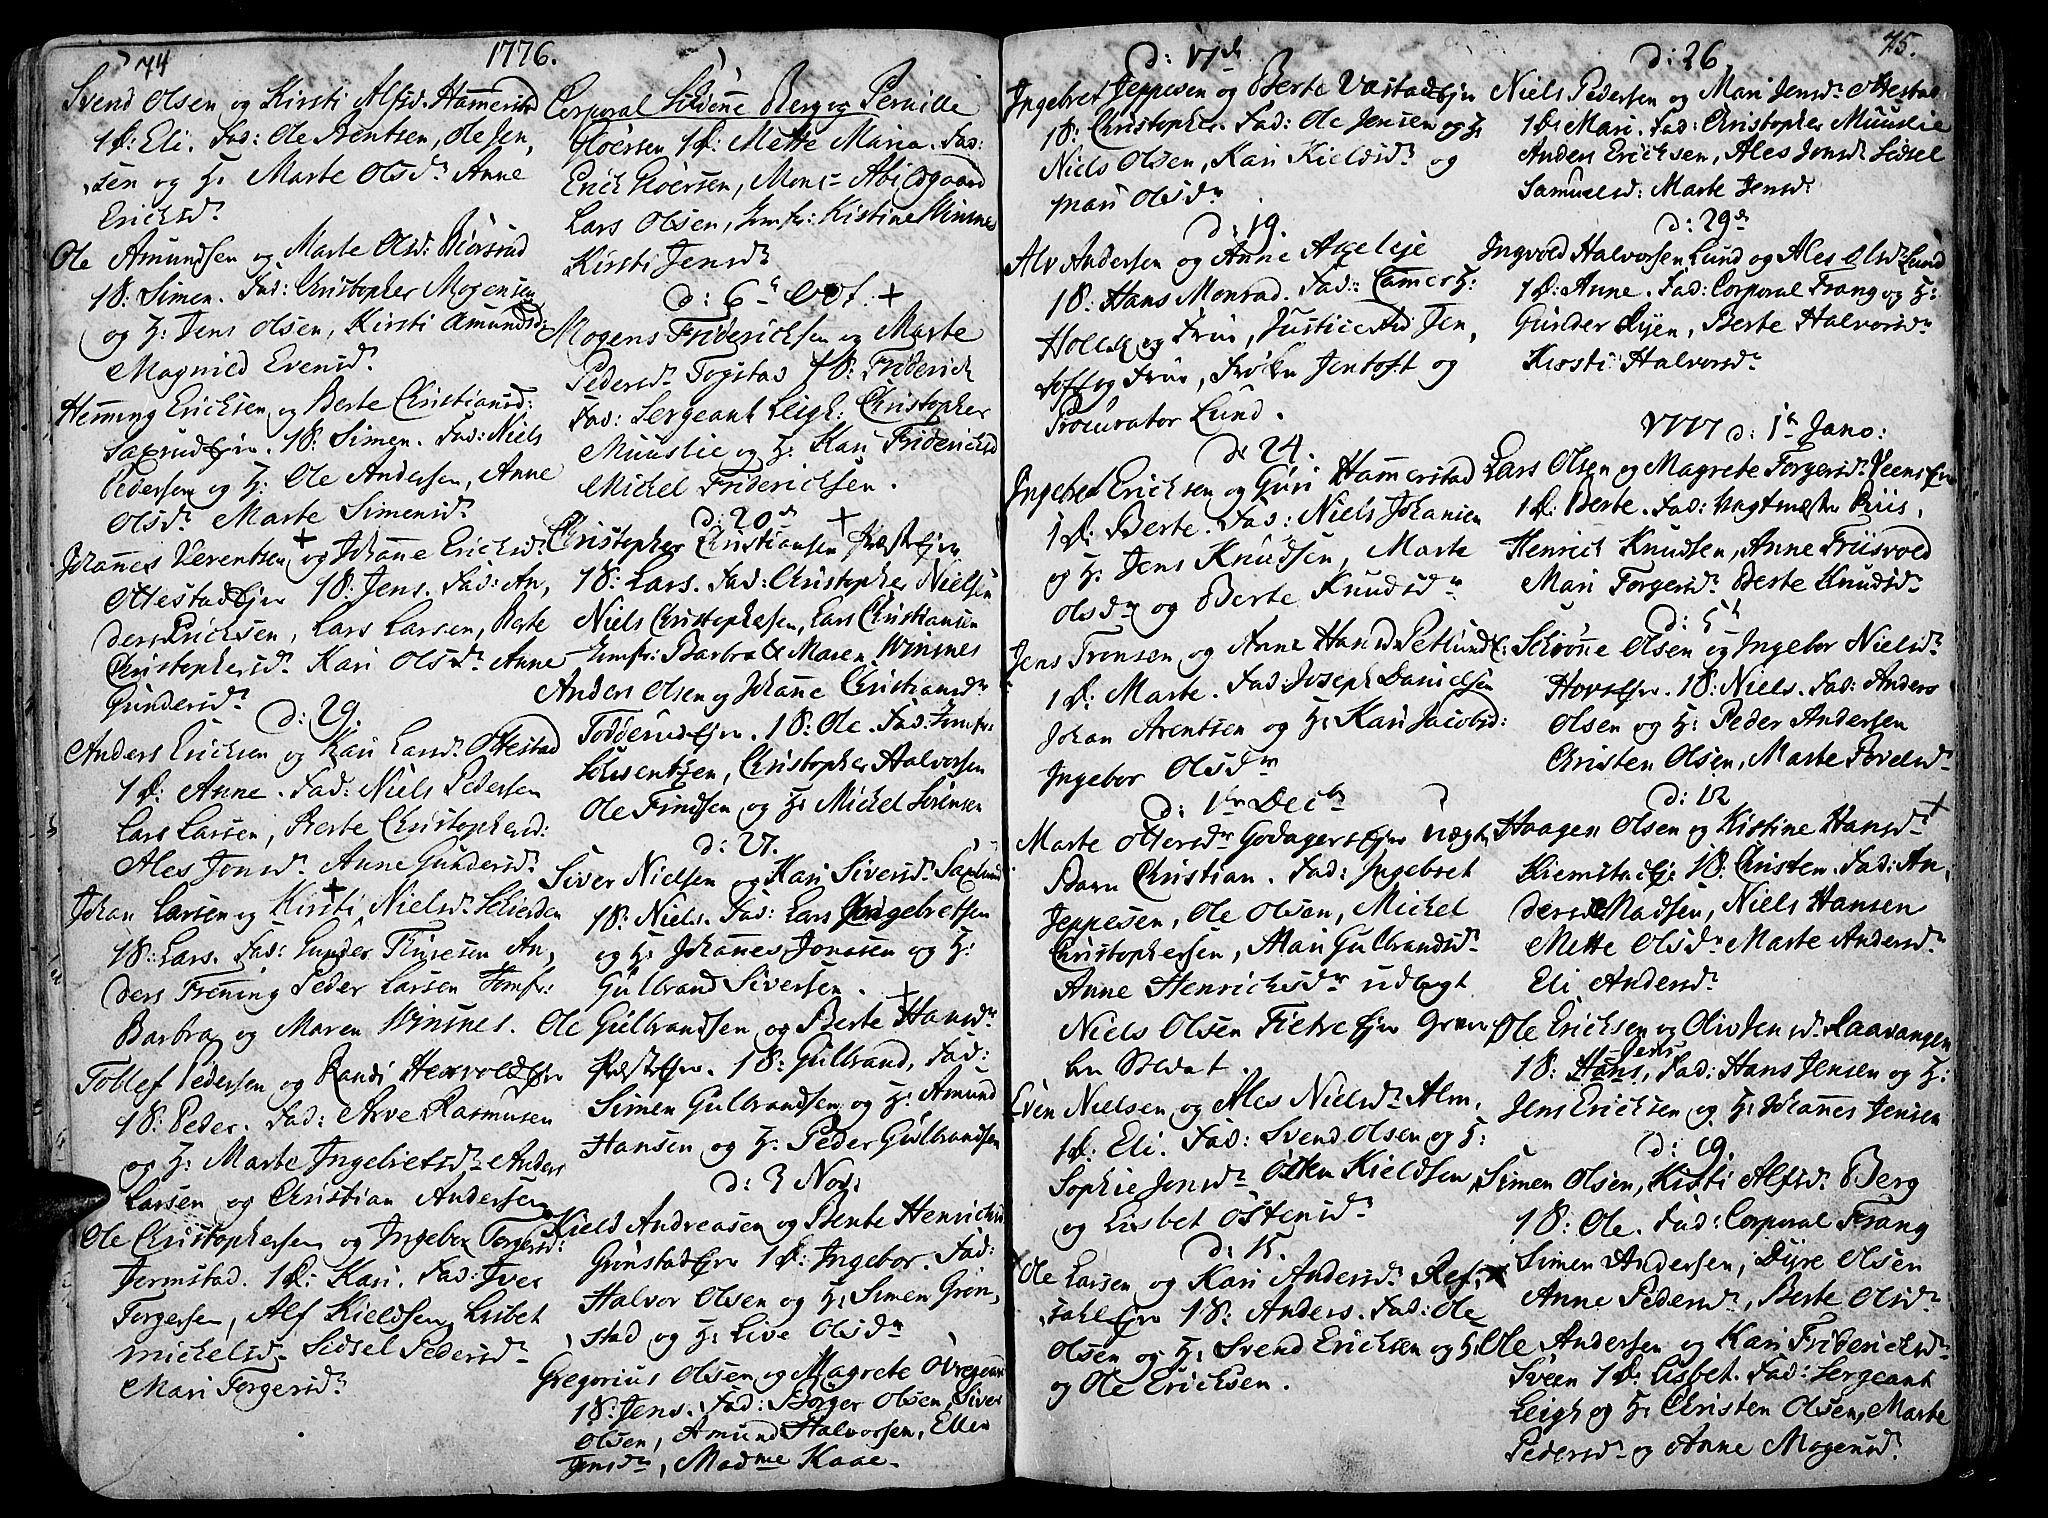 74
1776.
Svend Olsen og Kirsti Alfsd. Hammerstad
1 D: Eli. Fad: Ole Arentsen, Ole Jen,
sen og H: Marte Olsdr Anne
Ericksdr
Ole Amundsen og Marte Olsd: Biørsrud
1 S: Simen. Fad: Christopher Mogensen
og H: Jens Olsen, Kirsti Amundsd:
Magnild Evensdr
Henning Ericksen og Berte Christiansd:
Saxrud Ejer. 1 S: Simen. Fad: Niels
Pedersen og H: Ole Andersen, Anne
Olsdr Marte Simensdr
Johannes Verentsen og Johanne Ericksdr
Ottestad Ejer 1 S: Jens. Fad: An,
ders Ericksen, Lars Larsen, Berte
Christophersdr Kari Olsdr Anne
Gundersdr
d: 29.
Anders Ericksen og Kari Larsdr Ottestad
1 D: Anne. Fad: Niels Pedersen
Lars Larsen, Berte Christophersd:
Ales Jonsdr Anne Gundersdr
Johan Larsen og Kirsti Nielsdr Schierden
1 S: Lars. Fad: Gunder Thuresen An,
ders Frening Peder Larsen Jomfr:
Barbra og Maren Winsnes.
Tollef Pedersen og Randi Hexvold Ejer
1 S: Peder. Fad: Arve Rasmusen
og H: Marte Ingebretsdr Anders
Larsen og Christian Andersen
Ole Christophersen og Ingebor Torgersd:
Jermstad. 1 D: Kari. Fad: Iver
Torgersen, Alf Kieldsen, Lisbet
Michelsd. Sidsel Pedersdr
Mari Torgersdr
Corporal Berg og Pernille
Floersen 1 D: Mette Maria. Fad:
Erick Floersen, Mons: Abildgaard
Lars Olsen, Jomfr: Kistine Winsnes
Kirsti Jensdr
d: 6h Oct. +
Mogens Friderichsen og Marte
Pedersdr Togstad 1 S: Friderich
Fad: Sergeant Leigh: Christopher
Muuslie og H: Kari Friderichsd
Michel Friderichsen.
d: 20de +
Christopher Christiansen Præst Ejer
1 S: Lars. Fad: Christopher Nielsen
Niels Christophersen, Lars Christiansen
Jomfr: Barbra & Maren Winsnes
Anders Olsen og Johanne Christiansdr
Tødderud Ejer. 1 S: Ole. Fad: Jomfr:
Schwentzen, Christopher Halvorsen
Ole Findsen, og H: Michel Sørensen
d: 27.
Siver Nielsen og Kari Siversdr Saxlund
1 S: Niels. Fad: Lars Ingebretsen
og H: Johannes Jonasen og H:
Gulbrand Siversen.
Ole Gulbrandsen og Berte Hansdr
Præst Ejer. 1 S: Gulbrand. Fad:
Simen Gulbrandsen og H: Amund
Hansen og H: Peder Gulbrandsen
d: 3 Nov:
Kield Andreasen og Bente Henrichsd
Grønstad Ejer 1 D: Ingebor. Fad:
Halvor Olsen og H: Simen Grøn,
stad og H: Live Olsdr
Gregorius Olsen og Magrete Øvregaard
1 S: Jens. Fad: Børger Olsen, Siver
Olsen, Amund Halvorsen, Ellen
Jensdr, Madme Kaae.
75.
d: 17de
Ingebret Jeppesen og Berte Vastad Ejer
1 S: Christopher. Fad: Ole Jensen og H:
Niels Olsen, Kari Kieldsdr og
Mari Olsdr
d: 19.
Alv Andersen og Anne Axeleje
1 S: Hans Monrad. Fad: Camer H:
Holck og Frue, Justice Rd Jen,
toft og Frue, Frøken Jentoft og
Procurator Lund.
d: 24.
Ingebret Ericksen og Guri Hammerstad
1 D: Berte. Fad: Niels Johansen
og H: Jens Knudsen, Marte
Olsdr og Berte Knudsdr
Jens Tronsen og Anne Hansdr Petlund E:
1 D: Marte. Fad: Joseph Danielsen
Johan Arentsen og H: Kari Jacobsd:
Ingebor Olsdr
d: 1ste Decbr
Marte Ottersdr Godager Ejer uægte
Barn Christian. Fad: Ingebret
Jeppesen, Ole Olsen, Michel
Christophersen, Mari Gulbrandsdr
Anne Henrichsdr udlagt
Niels Olsen Fietre Ejer
Soldat.
Even Nielsen og Ales Nielsdr Alm.
1 D: Eli. Fad: Svend Olsen og H:
Sophie Jonsdr Østen Kieldsen,
og Lisbet Østensdr
d: 15.
Ole Larsen og Kari Andersdr Ref,
sahl Ejer 1 S: Anders. Fad: Ole
Olsen og H: Svend Ericksen og H:
og Ole Ericksen.
d: 26
Niels Pedersen og Mari Jensdr Ottestad
1 D: Mari. Fad: Christopher Muuslie
Anders Ericksen, Ales Jonsdr Sidsel
Samuelsd: Marte Jensdr
d: 29de
Ingvold Halvorsen Lund og Ales Olsdr Lund
1 D: Anne. Fad: Corporal Frang og H:
Gulder Ryen, Berte Halvorsdr
Kirsti Halvorsdr
1777 d: 1te Jano:
Lars Olsen og Magrete Torgersdr Veen Ejer
1 D: Berte. Fad: Vagtmester Riis,
Henrich Knudsen, Anne Friisvold
Mari Torgersdr Berte Knudsdr
d: 5h
Schiønne Olsen og Ingebor Nielsdr
Hovs Ejer. 1 S: Niels. Fad: Anders
Olsen og H: Peder Andersen
Christen Olsen, Marte Povelsdr
d: 12
Haagen Olsen og Kistine Hansdr +
Kiemstad Ej: 1 S: Christen. Fad: An,
ders Madsen, Niels Hansen
Mette Olsdr Marte Andersdr
Eli Andersdr
Ole Ericksen og Oliv Jensdr Raavangen
1 S: Hans Jens, Fad: Hans Jensen og H:
Jens Ericksen og H: Johannes Jensen
d: 19.
Simen Olsen, Kisti Alfsdr Berg
1 S: Ole. Fad: Corporal Frang
Simen Andersen, Dyre Olsen
Anne Pedersdr, Berte Olsdr
Ole Andersen og Kari Friderichsdr
Sveen 1 D: Lisbet. Fad: Sergeant
Leigh og H: Christen Olsen, Marte
Pedersdr og Anne Mogensdr